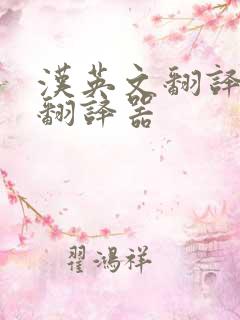 漢英文翻譯
翻譯器
翟鴻祥